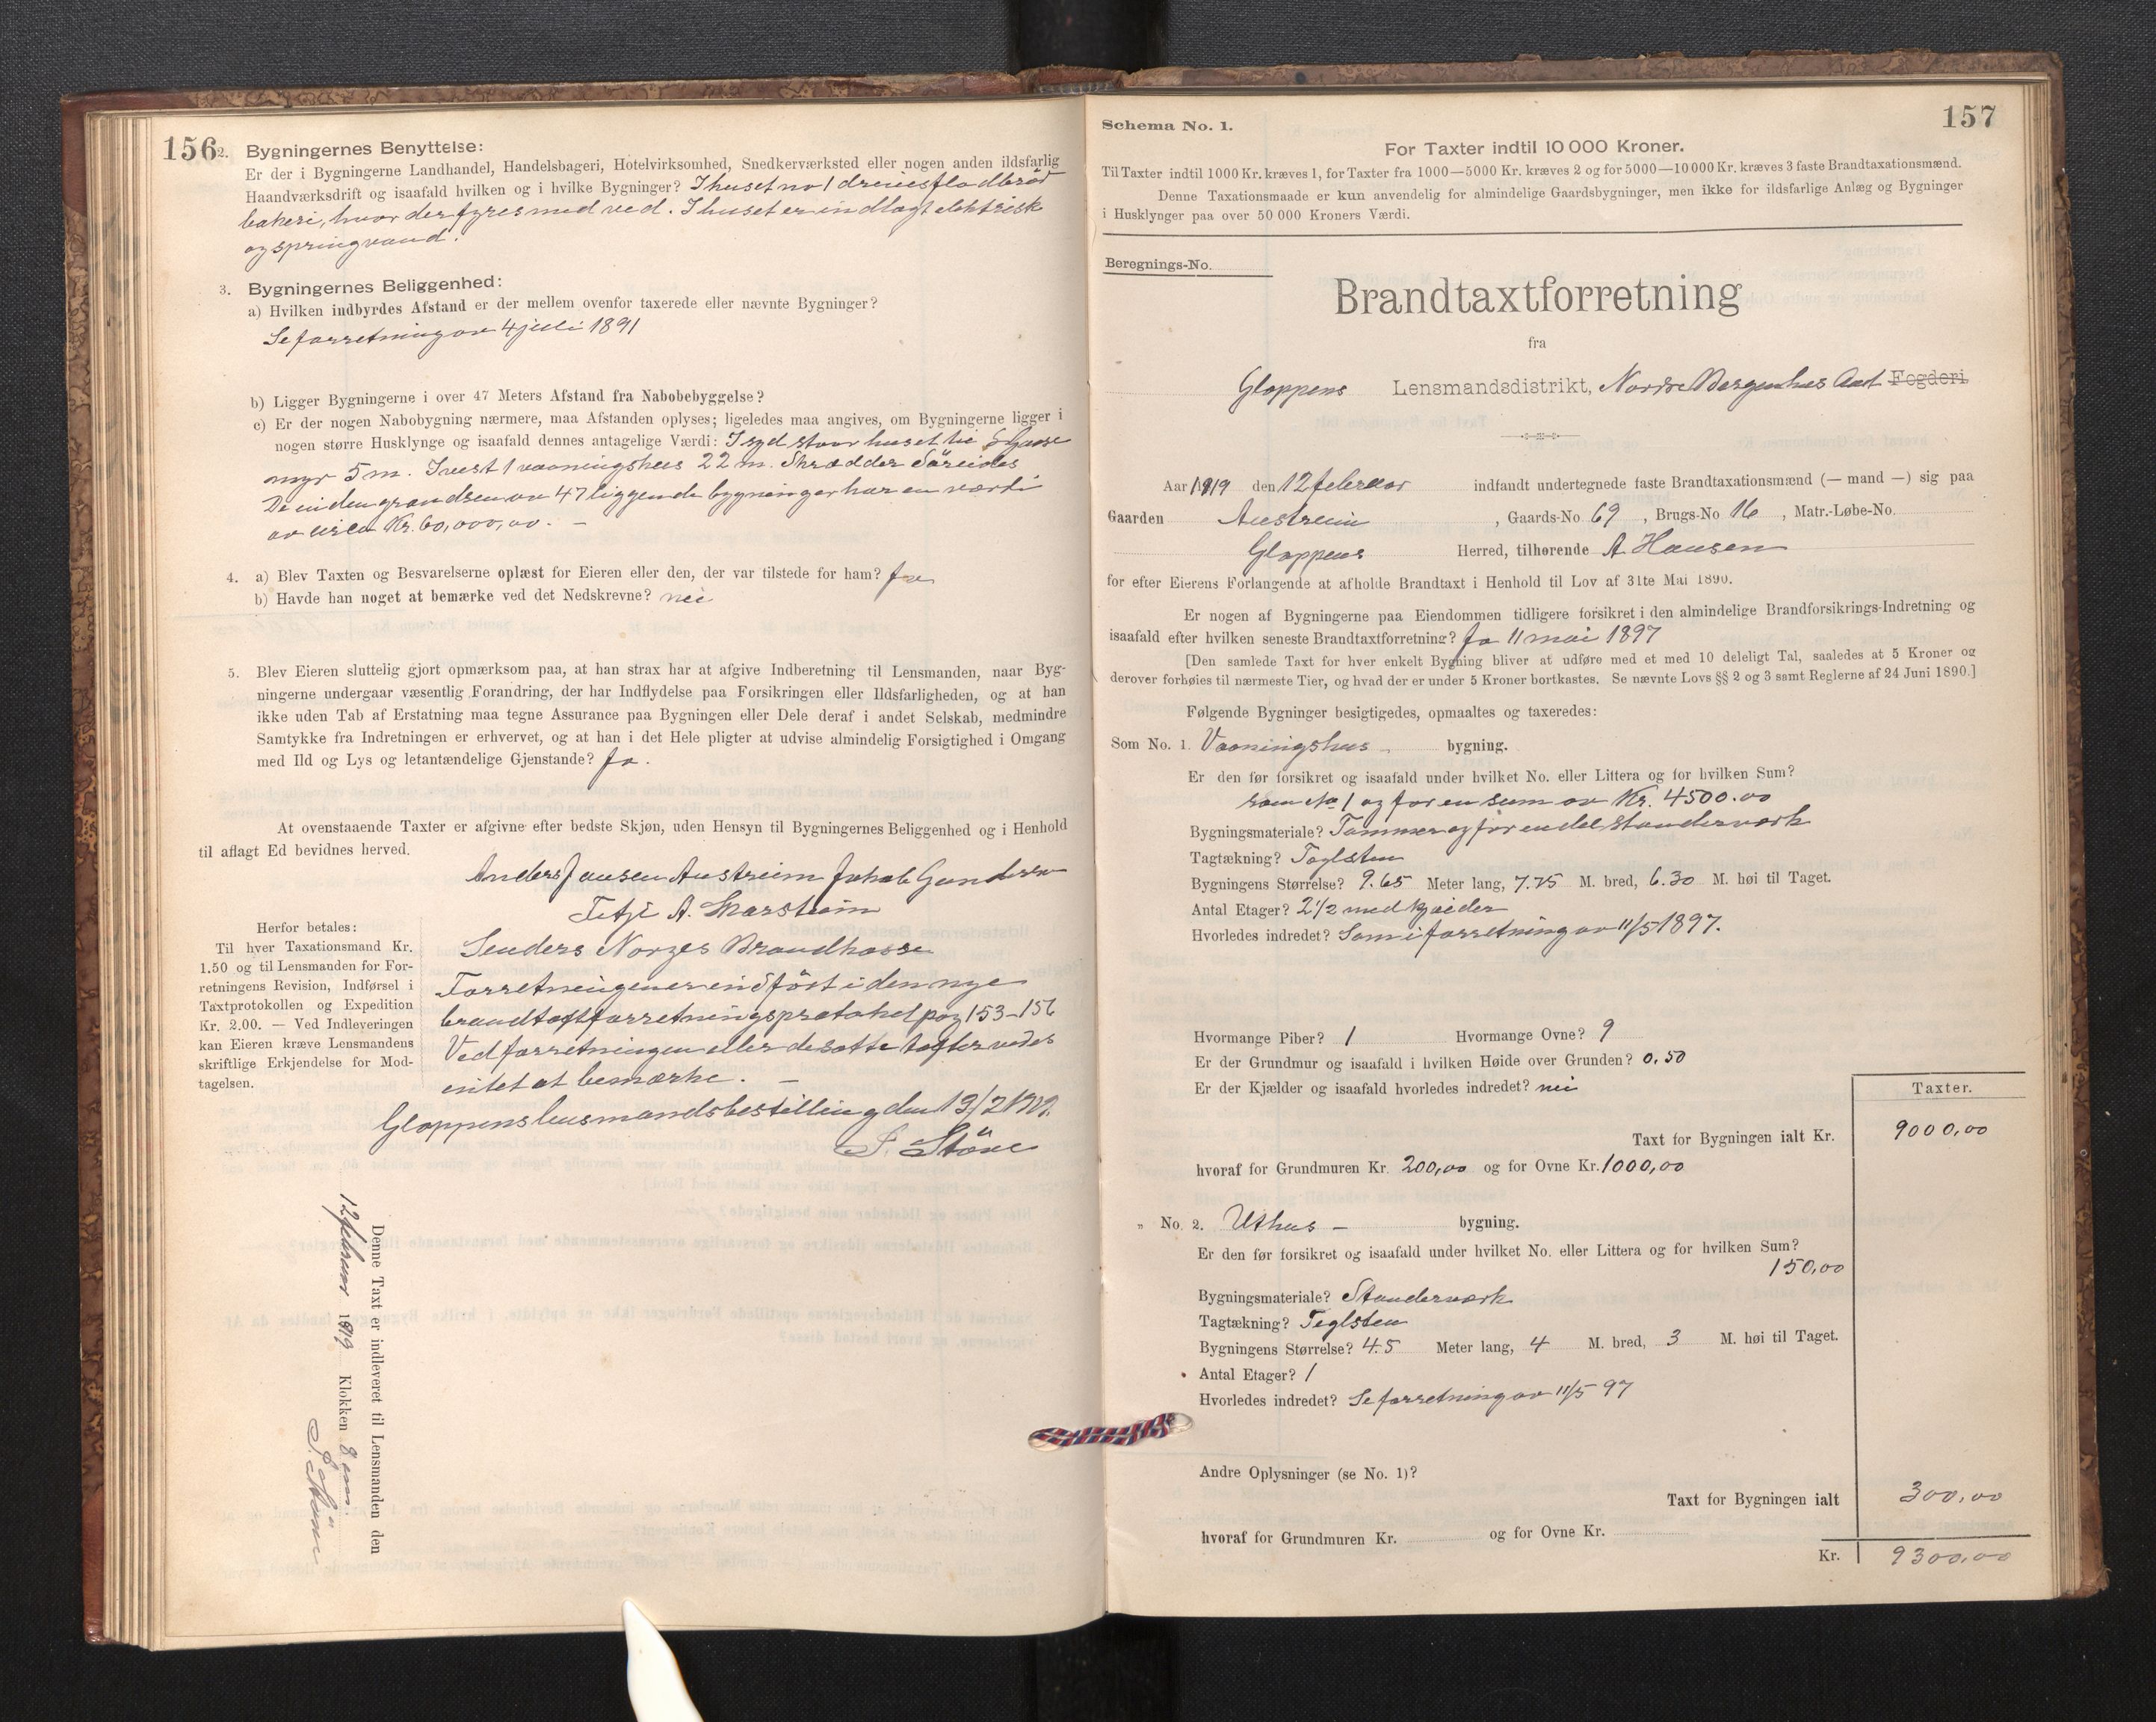 156
2. Bygningernes Benyttelse:
Er der i Bygningerne Landhandel, Handelsbageri, Hotelvirksomhed, Snedkerværksted eller nogen anden ildsfarlig
Haandværksdrift og isaafald hvilken og i hvilke Bygninger? I huset no 1 drives fladbrød
bakeri, hvor der fyres med ved. I huset er indlagt elektrisk
og springvand.
3. Bygningernes Beliggenhed:
a) Hvilken indbyrdes Afstand er der mellem ovenfor taxerede eller nævnte Bygninger?
Se forretning av 4 juli 1891
b) Ligger Bygningerne i over 47 Meters Afstand fra Nabobebyggelse?
c) Er der nogen Nabobygning nærmere, maa Afstanden oplyses; ligeledes maa angives, om Bygningerne ligger i
nogen større Husklynge og isaafald dennes antagelige Værdi: I syd staar huset til
myr 5 m. I vest 1 vaaningshus 22 m. Skrædder Söreides
De inden grændsen av 47 liggende bygninger har en værdi
av cirka Kr. 60,000,00. –
4. a) Blev Taxten og Besvarelserne oplæst for Eieren eller den, der var tilstede for ham? ja
b) Havde han noget at bemærke ved det Nedskrevne? nei
5. Blev Eieren sluttelig gjort opmærksom paa, at han strax har at afgive Indberetning til Lensmanden, naar Byg-
ningerne undergaar væsentlig Forandring, der har Indflydelse paa Forsikringen eller Ildsfarligheden, og at han
ikke uden Tab af Erstatning maa tegne Assurance paa Bygningen eller Dele deraf i andet Selskab, medmindre
Samtykke fra Indretningen er erhvervet, og at han i det Hele pligter at udvise almindelig Forsigtighed i Omgang
med Ild og Lys og letantændelige Gjenstande? Ja.
At ovenstaaende Taxter er afgivne efter bedste Skjøn, uden Hensyn til Bygningernes Beliggenhed og i Henhold
til aflagt Ed bevidnes herved.
Anders Jansen Austreim Jakob Gundersen
A.
Herfor betales:
Til hver Taxationsmand Kr.
1.50 og til Lensmanden for For-
retningens Revision, Indførsel i
Taxtprotokollen og Expedition
Kr. 2.00. — Ved Indleveringen
kan Eieren kræve Lensmandens
skriftlige Erkjendelse for Mod-
tagelsen.
Sendes Norges Brandkasse
Forretningen er indført i den nye
brandtaxtforretningsprotokol pag 153–156
Ved forretningen eller de satte taxter vides
intet at bemærke. –
Gloppens lensmandsbestilling den 13/2 1919.
S. Störe
Denne Taxt er indleveret til Lensmanden den
12 februar 1919 Klokken 8 em.
S. Störe
157
Schema No. 1.
For Taxter indtil 10 000 Kroner.
Til Taxter indtil 1000 Kr. kræves 1, for Taxter fra 1000—5000 Kr. kræves 2 og for 5000—10000 Kr. kræves 3 faste Brandtaxationsmænd.
Denne Taxationsmaade er kun anvendelig for almindelige Gaardsbygninger, men ikke for ildsfarlige Anlæg og Bygninger
i Husklynger paa over 50 000 Kroners Værdi.
Beregnings-No.
Brandtaxtforretning
fra
Gloppens Lensmandsdistrikt, Nordre Bergenhus Amt Fogderi
Aar 1919 den 12 februar indfandt undertegnede faste Brandtaxationsmænd (— mand —) sig paa
Gaarden Austreim, Gaards-No 69, Brugs-No 16, Matr.-Løbe-No.
Gloppens Herred, tilhørende A Hansen
for efter Eierens Forlangende at afholde Brandtaxt i Henhold til Lov af 31te Mai 1890.
Er nogen af Bygningerne paa Eiendommen tidligere forsikret i den almindelige Brandforsikrings-Indretning og
isaafald efter hvilken seneste Brandtaxtforretning? Ja 11 mai 1897
[Den samlede Taxt for hver enkelt Bygning bliver at udføre med et med 10 deleligt Tal, saaledes at 5 Kroner og
derover forhøies til nærmeste Tier, og hvad der er under 5 Kroner bortkastes. Se nævnte Lovs §§ 2 og 3 samt Reglerne af 24 Juni 1890.]
Følgende Bygninger besigtigedes, opmaaltes og taxeredes:
Som No. 1. Vaaningshus bygning.
Er den før forsikret og isaafald under hvilket No. eller Littera og for hvilken Sum?
som No 1 og for en sum av Kr. 4500.00
Bygningsmateriale? Tømmer og for en del standerverk
Tagtækning? Teglsten
Bygningens Størrelse? 9.65 Meter lang, 7.75 M. bred, 6.30 M. høi til Taget.
Antal Etager? 2 1/2 med kjelder
Hvorledes indredet? Som i forretning av 11/5 1897.
Hvormange Piber? 1 Hvormange Ovne? 9
Er der Grundmur og isaafald i hvilken Høide over Grunden? 0.50
Er der Kjælder og isaafald hvorledes indredet? nei
Taxter.
Taxt for Bygningen ialt Kr. 9000,00
hvoraf for Grundmuren Kr. 200,00 og for Ovne Kr. 1000,00
„ No. 2. Uthus – bygning.
Er den før forsikret og isaafald under hvilket No. eller Littera og for hvilken Sum?
150,00
Bygningsmateriale? Standerverk
Tagtækning? Teglsten
Bygningens Størrelse? 4.5 Meter lang, 4 M. bred, 3 M. høi til Taget.
Antal Etager? 1
Hvorledes indredet? Se forretning av 11/5 97
Andre Oplysninger (se No. 1)?
Taxt for Bygningen ialt 300,00
hvoraf for Grundmuren Kr. og for Ovne Kr.
Kr. 9300,00